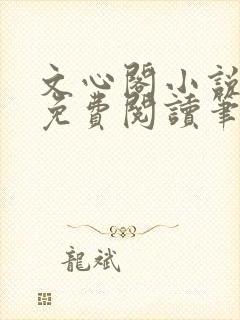 文心閣小說
免費閱讀筆
龍斌